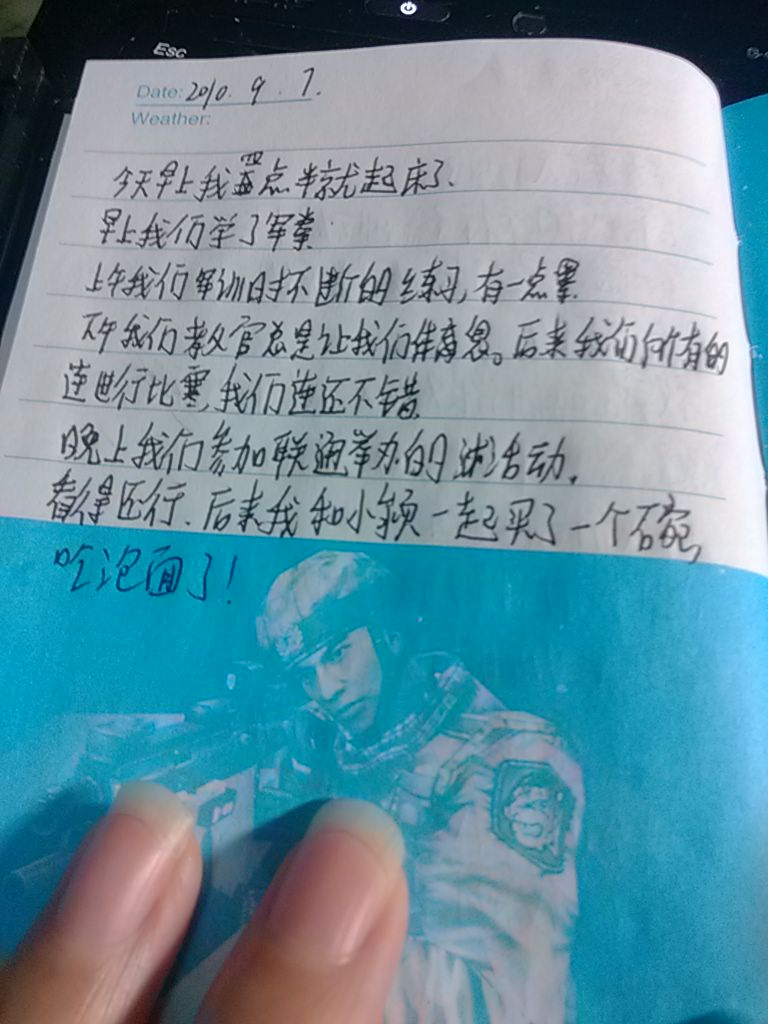 Esc
Date: 2010. 9. 7.
Weather:
今天早上我四点半就起床了.
早上我们学了军拳.
上午我们军训时不断的练习,有一点累.
下午我们教官总是让我们休息。后来我们何所有的
连进行比赛,我们连还不错.
晚上我们参加联通举办的活动.
看得还行.后来我和小颖一起买了一个碗,
吃泡面了!